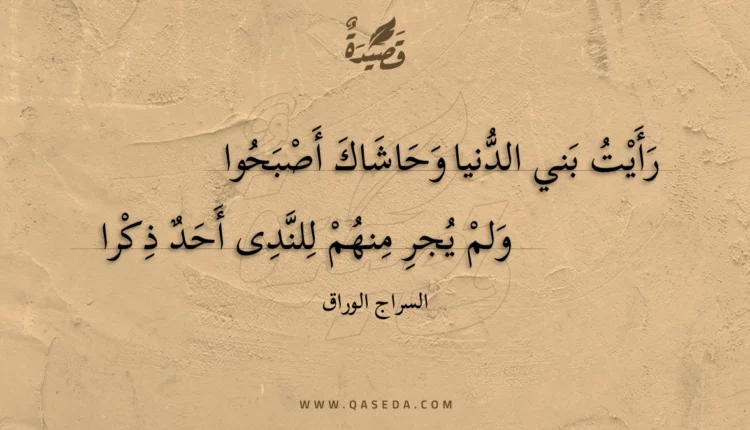 قَصِيْدَةٌ
رَأَيْتُ بَني الدُّنيا وَحَاشَاكَ أَصْبَحُوا
وَلمْ يُجرِ مِنهُمْ لِلنَّدِى أَحَدٌ ذِكْرا
السراج الوراق
WWW.QASEDA.COM